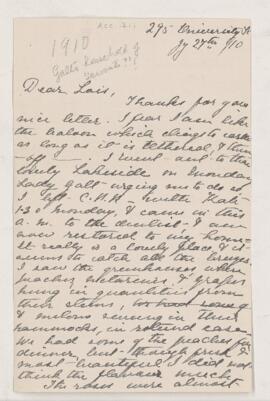 ACC. 211
295 University St
Jy 27th /10
1910
Galt's Household of
Dear Lois,
Thanks for your
nice letter. I fear I am like
the baloon which clings to earth
as long as it is tethered, & then
- off - . I went out to the
lovely Lakeside on Monday
Lady Galt urging me to do so.
I left C.H.H. with Kati-
1-30 Monday, & came in this
a.m. to the dentist & am
now restored to my home.
It really is a lovely place & it
seems to catch all the breezes.
I saw the greenhouses where
peaches, nectarines, & grapes
hung in quantities from
their stems,
& melons swung in their
hammocks, in
We had some of the peaches for
dinner, but though fresh &
most beautiful I did not
think the flavour much.
The roses were almost